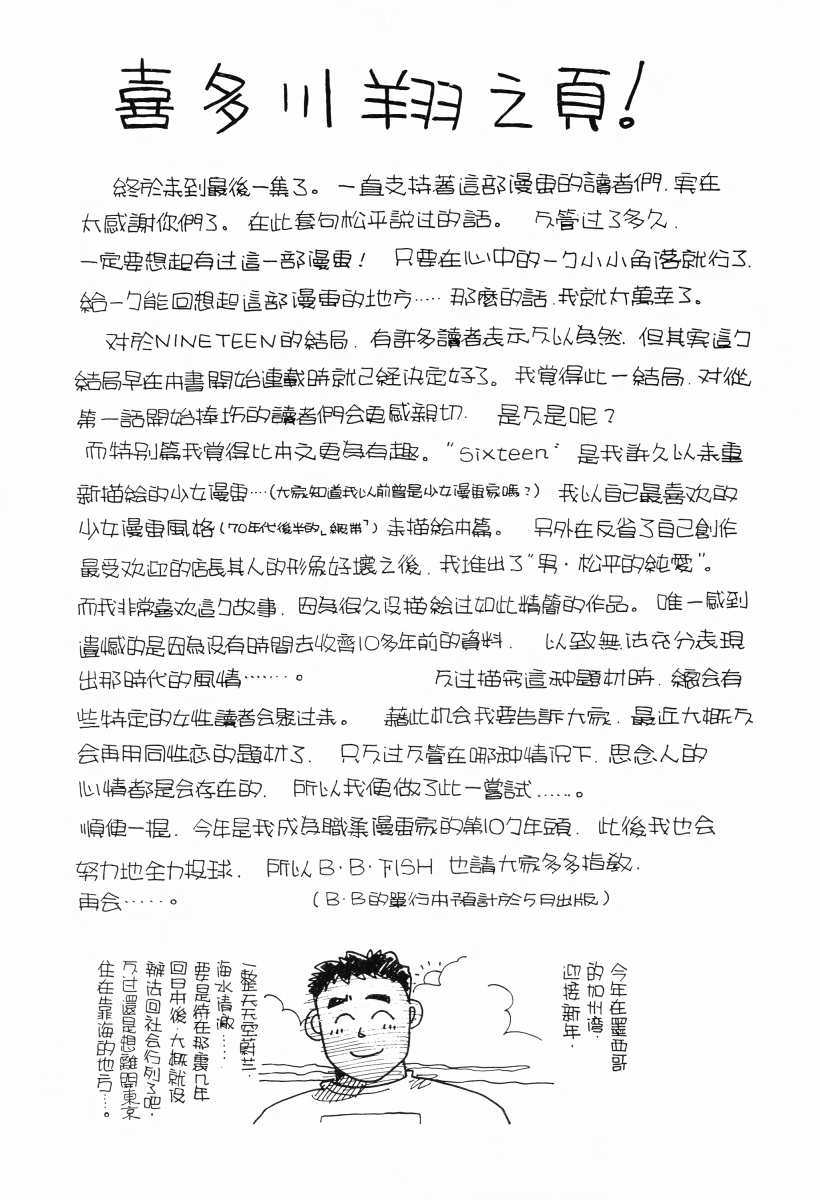 喜多川翔之頁!
終於来到最後一集了。一直支持著這部漫畫的讀者們,実在
太感謝你們了。在此套句松平說过的話。 不管过了多久,
一定要想起有过這一部漫畫! 只要在心中的一个小小角落就行了,
給一个能回想起這部漫畫的地方‥‥‥那麼的話,我就太萬幸了。
对於NINETEEN的結局,有許多讀者表示不以為然,但其実這个
結局早在本書開始連載時就已経決定好了。我覚得此一結局,对從
第一話開始捧场的讀者們会更感親切,是不是呢?
而特别篇我覚得比本文更為有趣。“Sixteen”是我許久以来重
新描絵的少女漫畫‥‥(大家知道我以前曾是少女漫畫家嗎?)我以自己最喜欢的
少女漫畫風格(’70年代後半的「緞帯」)来描絵本篇。 另外在反省了自己創作
最受欢迎的店長其人的形象好壞之後,我堆出了“男・松平的純愛”。
而我非常喜欢這个故事,因為很久没描絵过如此精簡的作品。唯一感到
遺憾的是因為没有時間去收齊10多年前的資料, 以致無法充分表現
出那時代的風情‥‥‥‥。 不过描写這种題材時,總会有
些特定的女性讀者会聚过来。 藉此机会我要告訴大家,最近大概不
会再用同性恋的題材了,只不过不管在哪种情况下,思念人的
心情都是会存在的,所以我便做了此一嘗試……。
順便一提,今年是我成為職業漫畫家的第10个年頭,此後我也会
努力地全力投球,所以B・B・FISH 也請大家多多指教,
再会‥‥‥。 (B・B的單行本預計於5月出版)
今年在墨西哥
的加州湾,
迎接新年,
一整天天空蔚兰,
海水清澈……,
要是待在那裏几年
回日本後,大概就没
辦法回社会行列了吧,
不过還是想離開東京
住在靠海的地方‥‥。